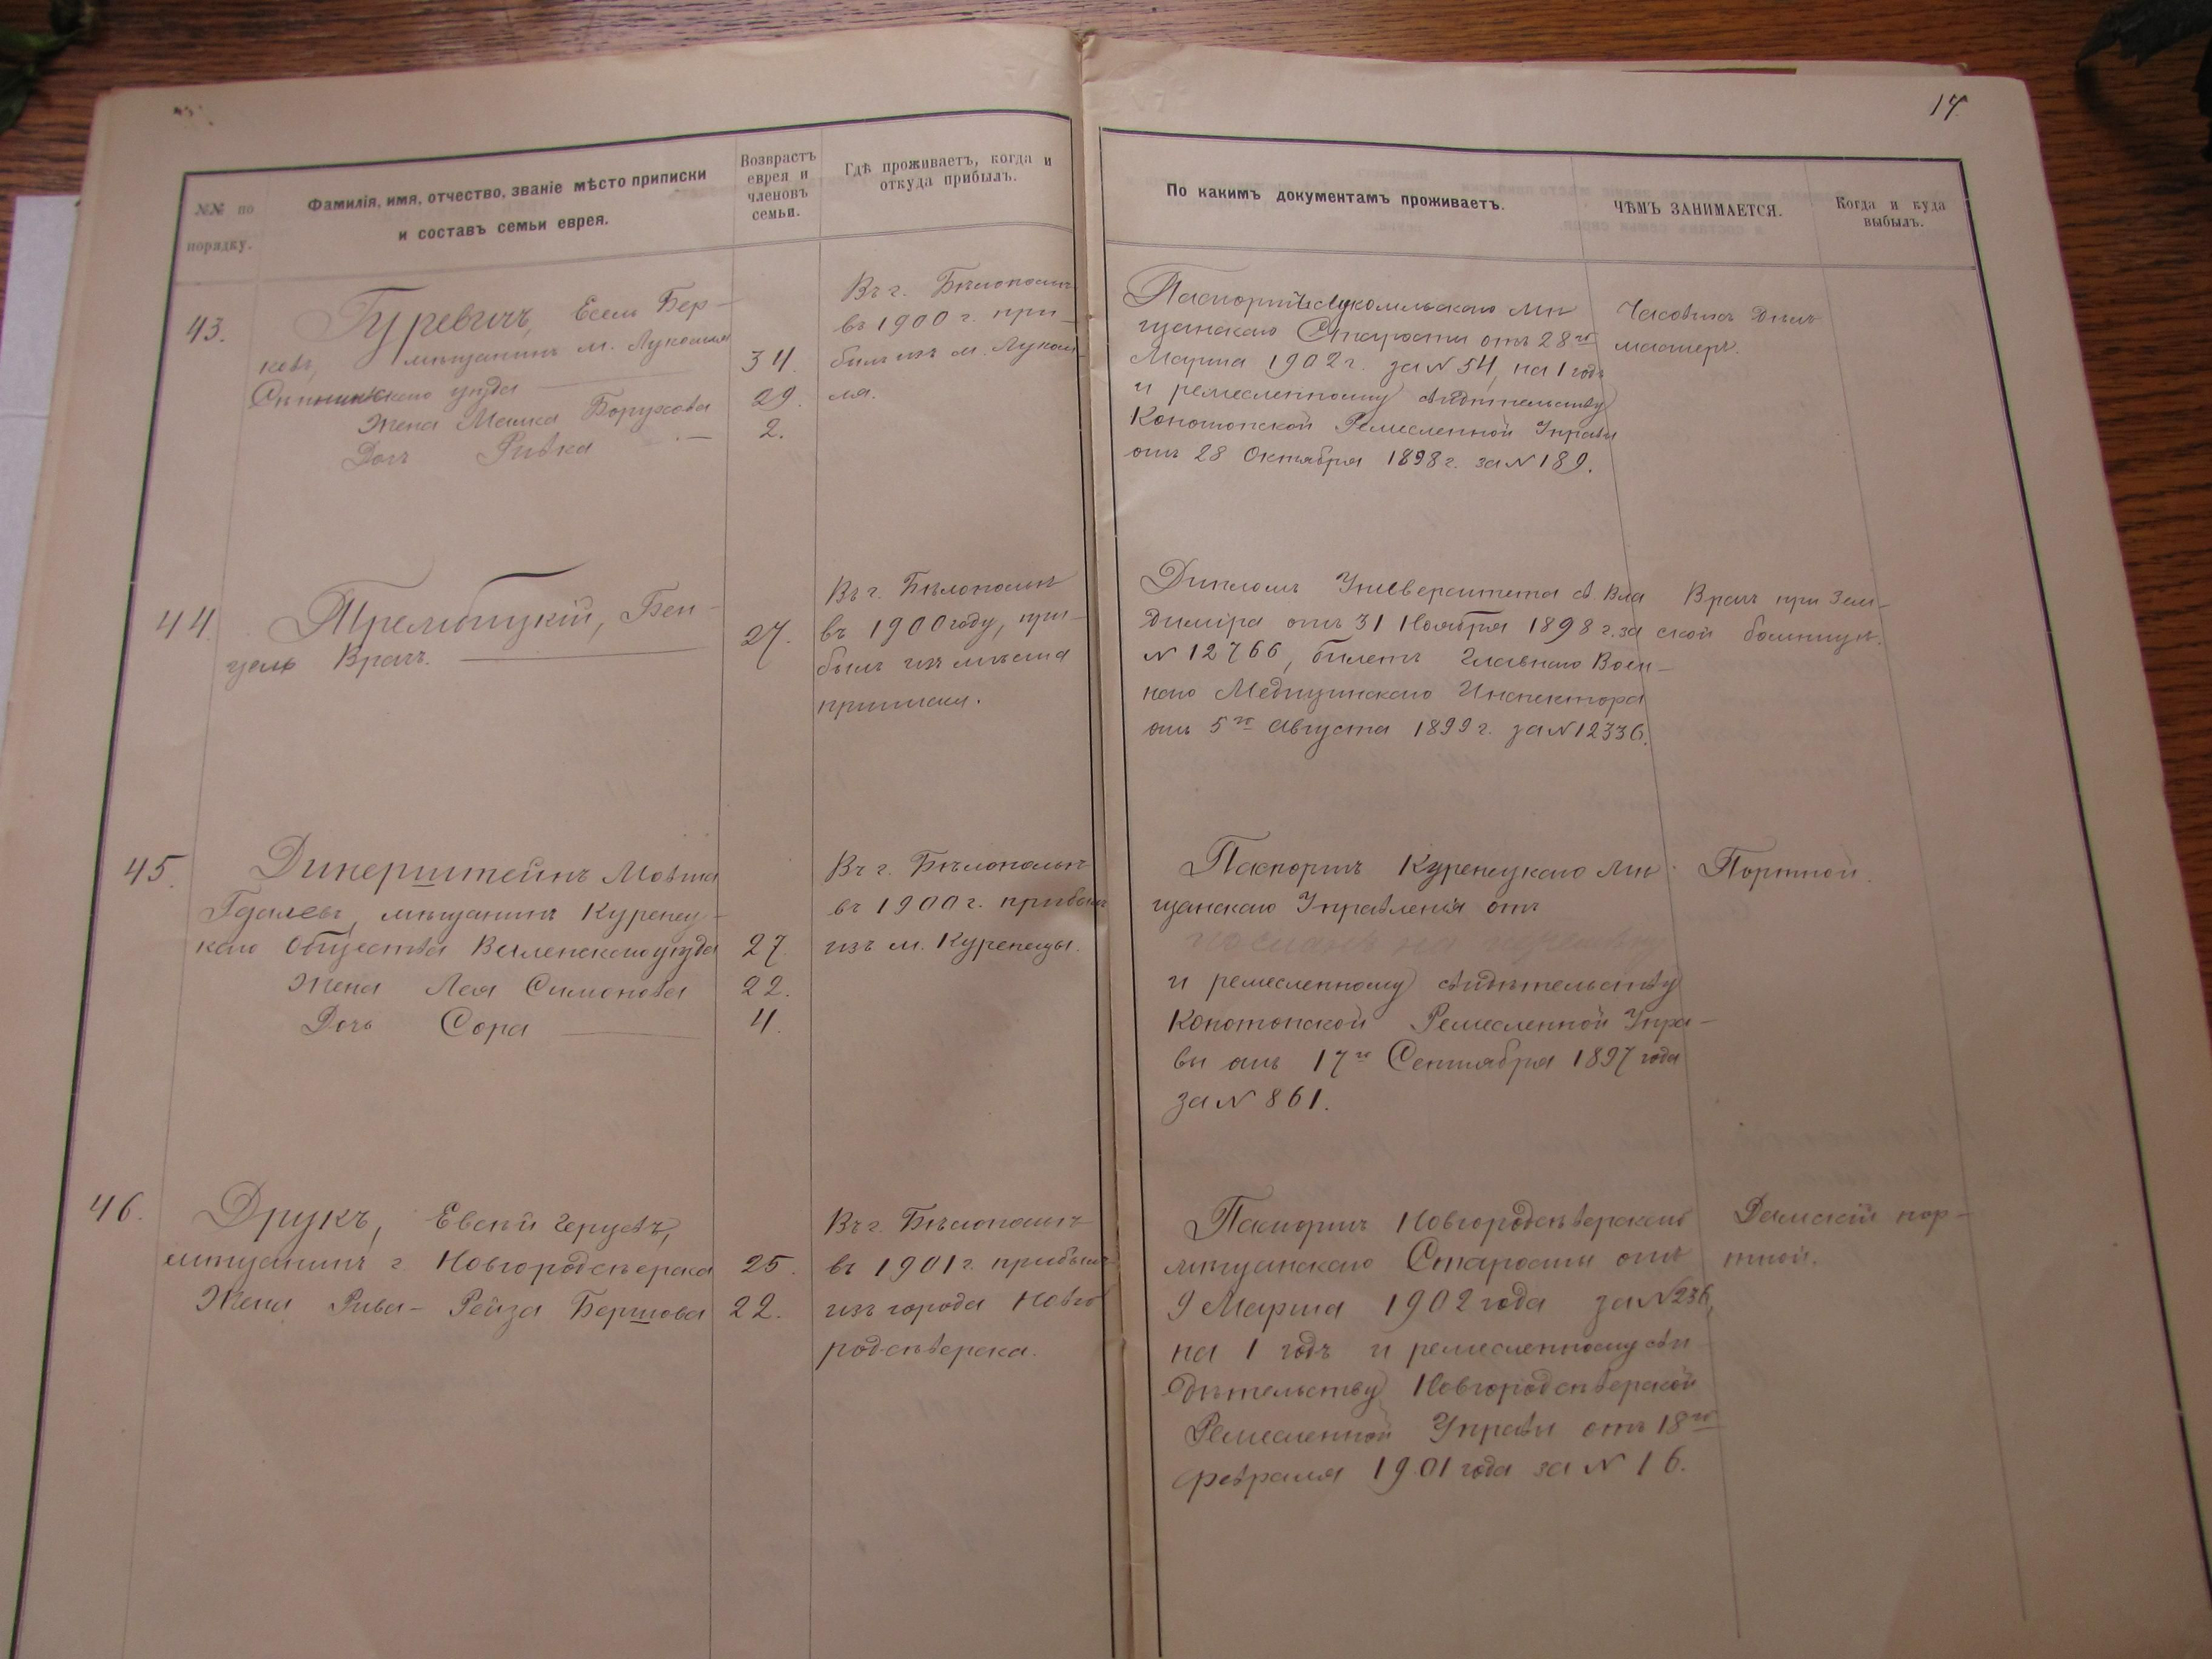 17.
№№ по
порядку.
Фамилія, имя, отчество, званіе мѣсто приписки
и составъ семьи еврея.
Возврастъ
еврея и
членовъ
семьи.
Гдѣ проживаетъ, когда и
откуда прибылъ.
По какимъ документамъ проживаетъ.
ЧѢМЪ ЗАНИМАЕТСЯ.
Когда и куда
выбылъ.
43.
Гуревичъ, Есель Бер-
ковъ, мѣщанинъ м. Лукомля
Сѣнинскаго уѣзда
Жена Машка Борухова
Дочь Ривка
34.
29.
2.
Въ г. Бѣлопольѣ
въ 1900 г. при-
былъ изъ м. Луком-
ля.
Паспортъ Лукомльскаго Мѣ
щанскаго Старосты отъ 28го
Марта 1902 г. за N 54, на 1 годъ
и ремесленному свидѣтельству
Конотопской Ремесленной Управы
отъ 28 Октября 1898 г. за N 189.
Часовыхъ дѣлъ
мастеръ.
44.
Трембицкій, Бен-
ціонъ Врачъ.
27.
Въ г. Бѣлопольѣ
въ 1900 году, при-
былъ изъ мѣста
приписки.
Дипломъ Университета св. Вла
диміра отъ 31 Ноября 1898 г. за
N 12766, билетъ Главнаго Воен-
наго Медицинскаго Инспектора
отъ 5го Августа 1899 г. за N 12336.
Врачъ при Зем-
ской больницѣ.
45.
Динерштейнъ Мовша
Гдалевъ, мѣщанинъ Куренец-
каго Общества Виленскаго уѣзда
Жена Лея Симонова
Дочь Сора
27.
22.
4.
Въ г. Бѣлопольѣ
въ 1900 г. прибылъ
изъ м. Куренецы.
Паспортъ Куренецкаго Мѣ
щанскаго Управленія отъ
и ремесленному свидѣтельству
Конотопской Ремесленной Упра-
вы отъ 17го Сентября 1897 года
за N 861.
Портной.
46.
Друкъ, Евсей
мѣщанинъ г. Новгородсѣверска
Жена Рива-Рейза Бершова
25.
22.
Въ г. Бѣлопольѣ
въ 1901 г. прибылъ
изъ города Новго
родсѣверска.
Паспортъ Новгородсѣверскаго
мѣщанскаго Старосты отъ
9 Марта 1902 года за N 236,
на 1 годъ и ремесленному сви
дѣтельству Новгородсѣверской
Ремесленной Управы отъ 18го
февраля 1901 года за N 16.
Дамскій пор-
тной.